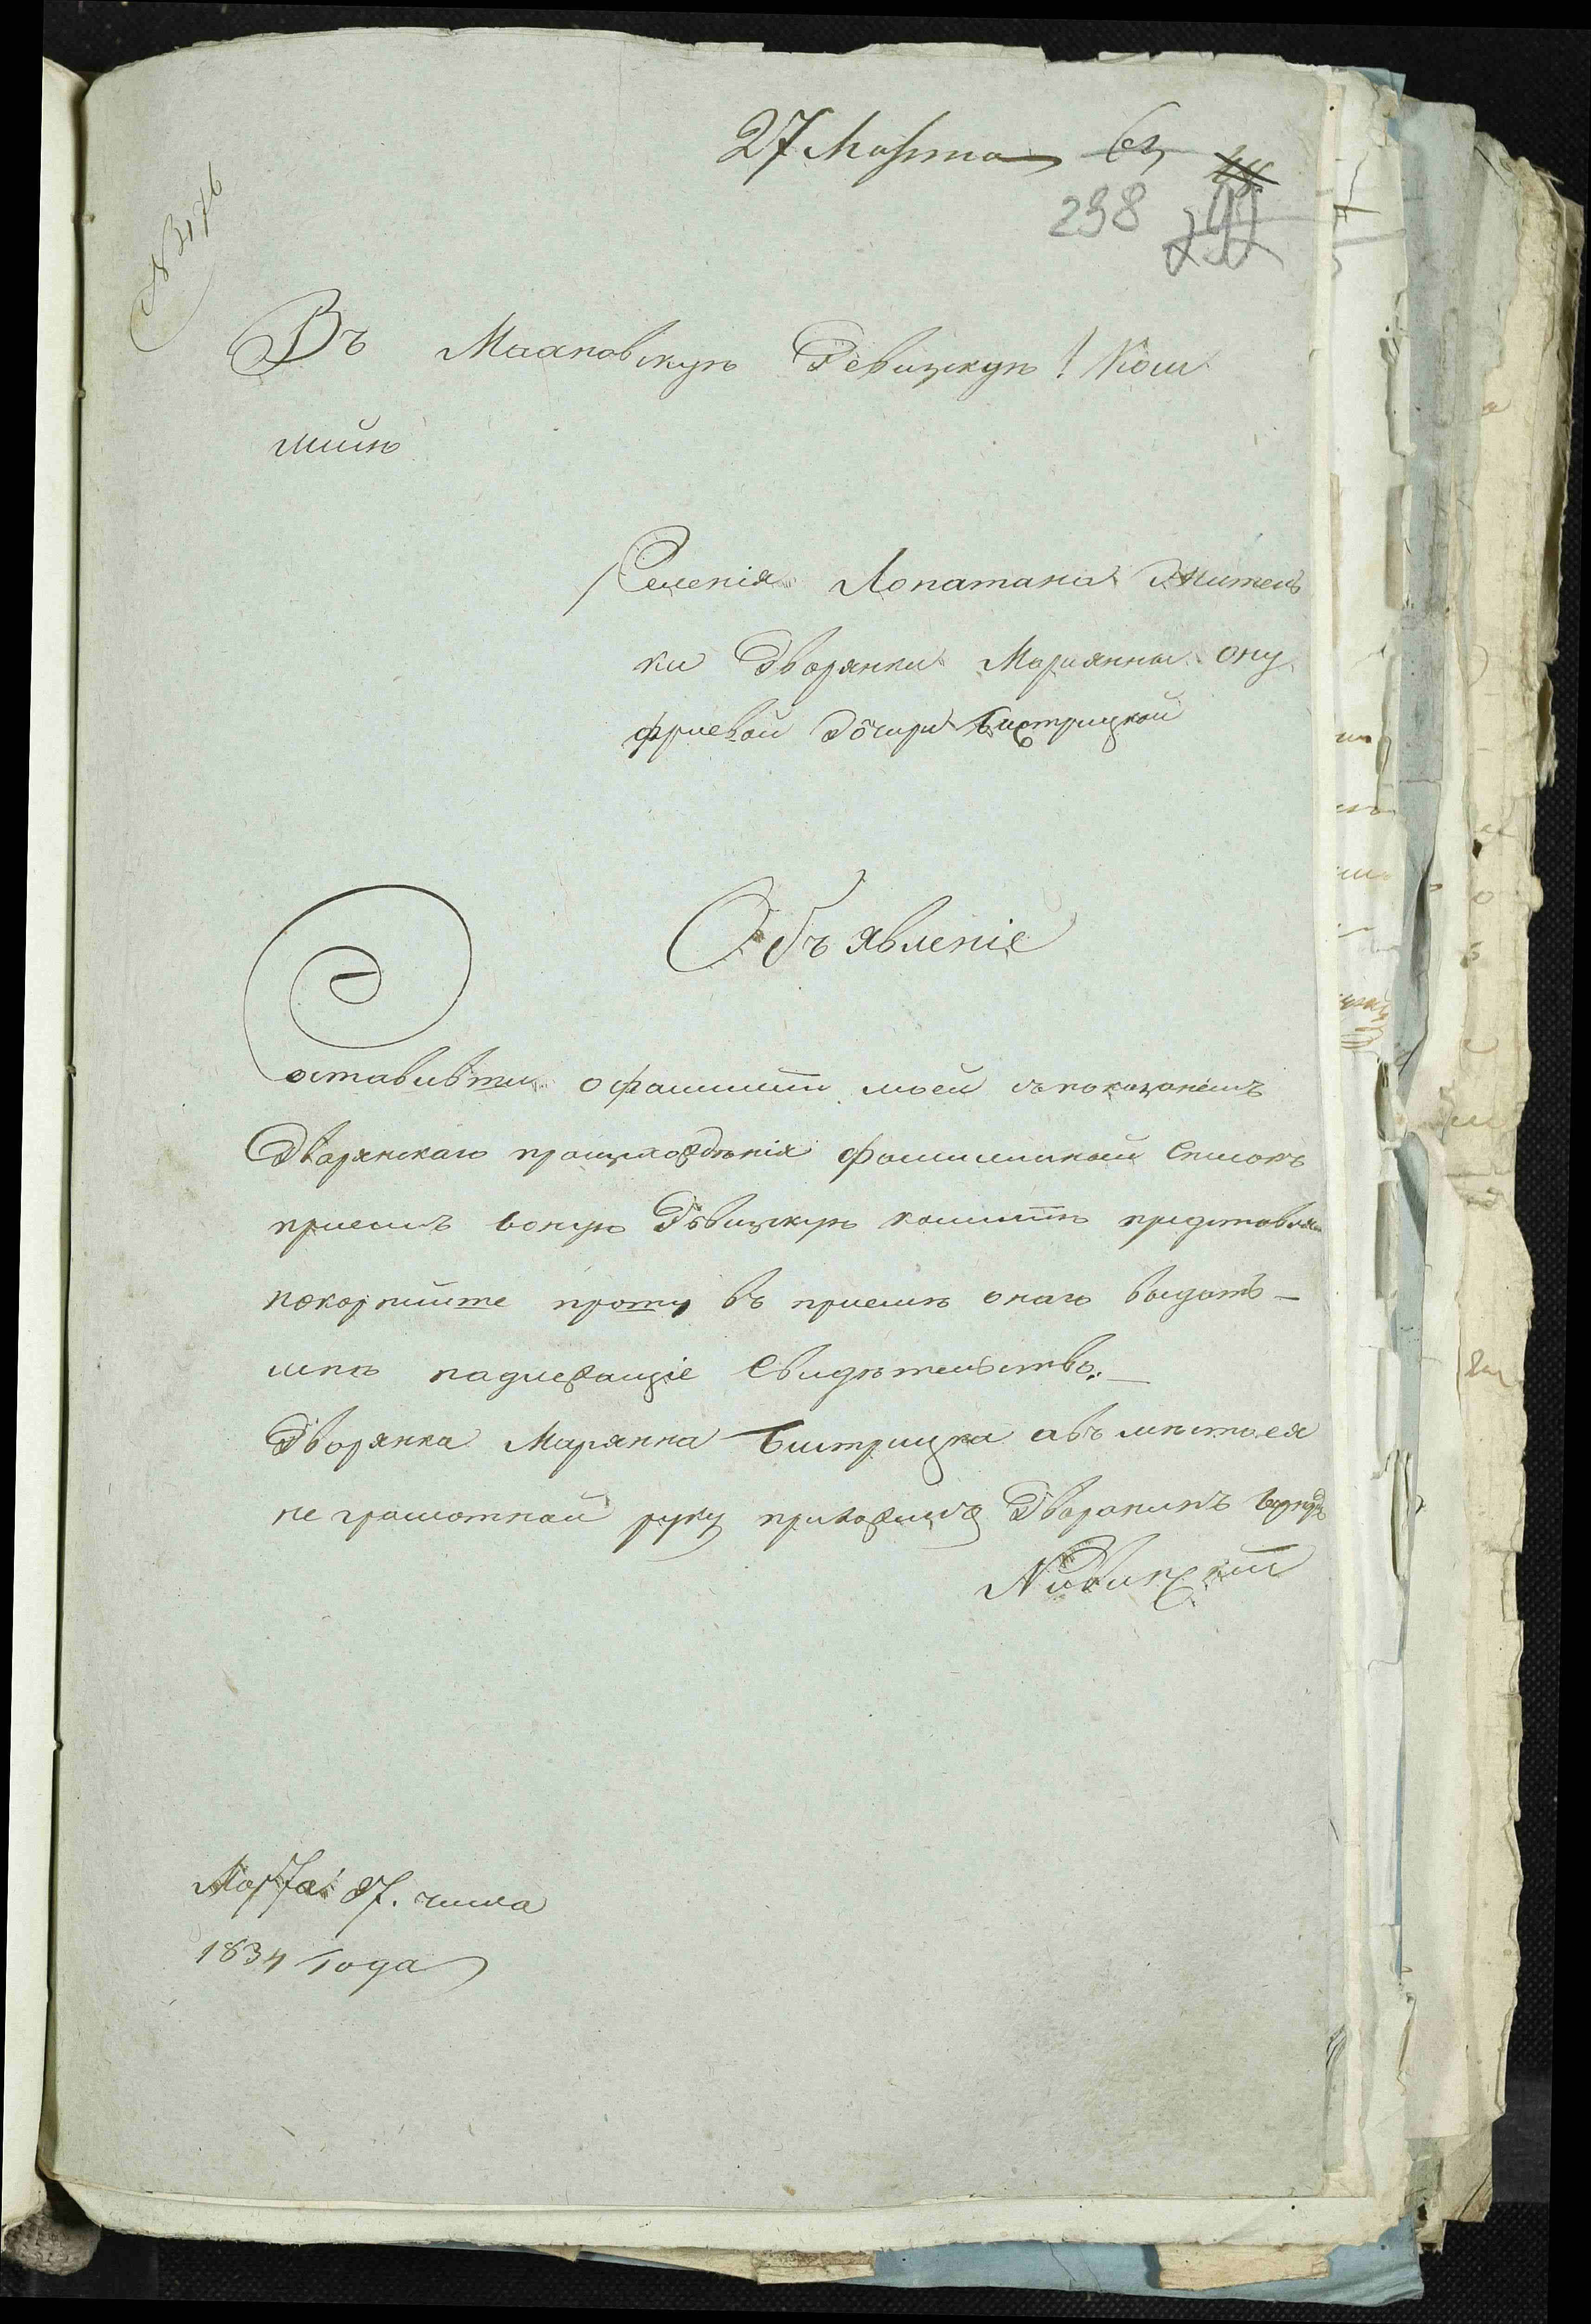 27 Марта 63
238
№ 3176
Въ Ревизскую Ком
мийю
Селенія Лопатана Житель
ки Дворянки Марианны Ону
фриевой дочири Бистрицкой
Объявленіе
Составивши о фамилии моей съ показанемъ
Дворянскаго произхожденія фамилиной Списокъ
приемъ воную Ревизкую комиттю представляя
покорнийше прошу въ приеме онаго выдать —
мне надлежащіе Свидетельство. —
Дворянка Марянна Бистрицка авъ местоея
не грамотной руку приложилъ Дворанинъ
1834 Года
Марта 27. числа